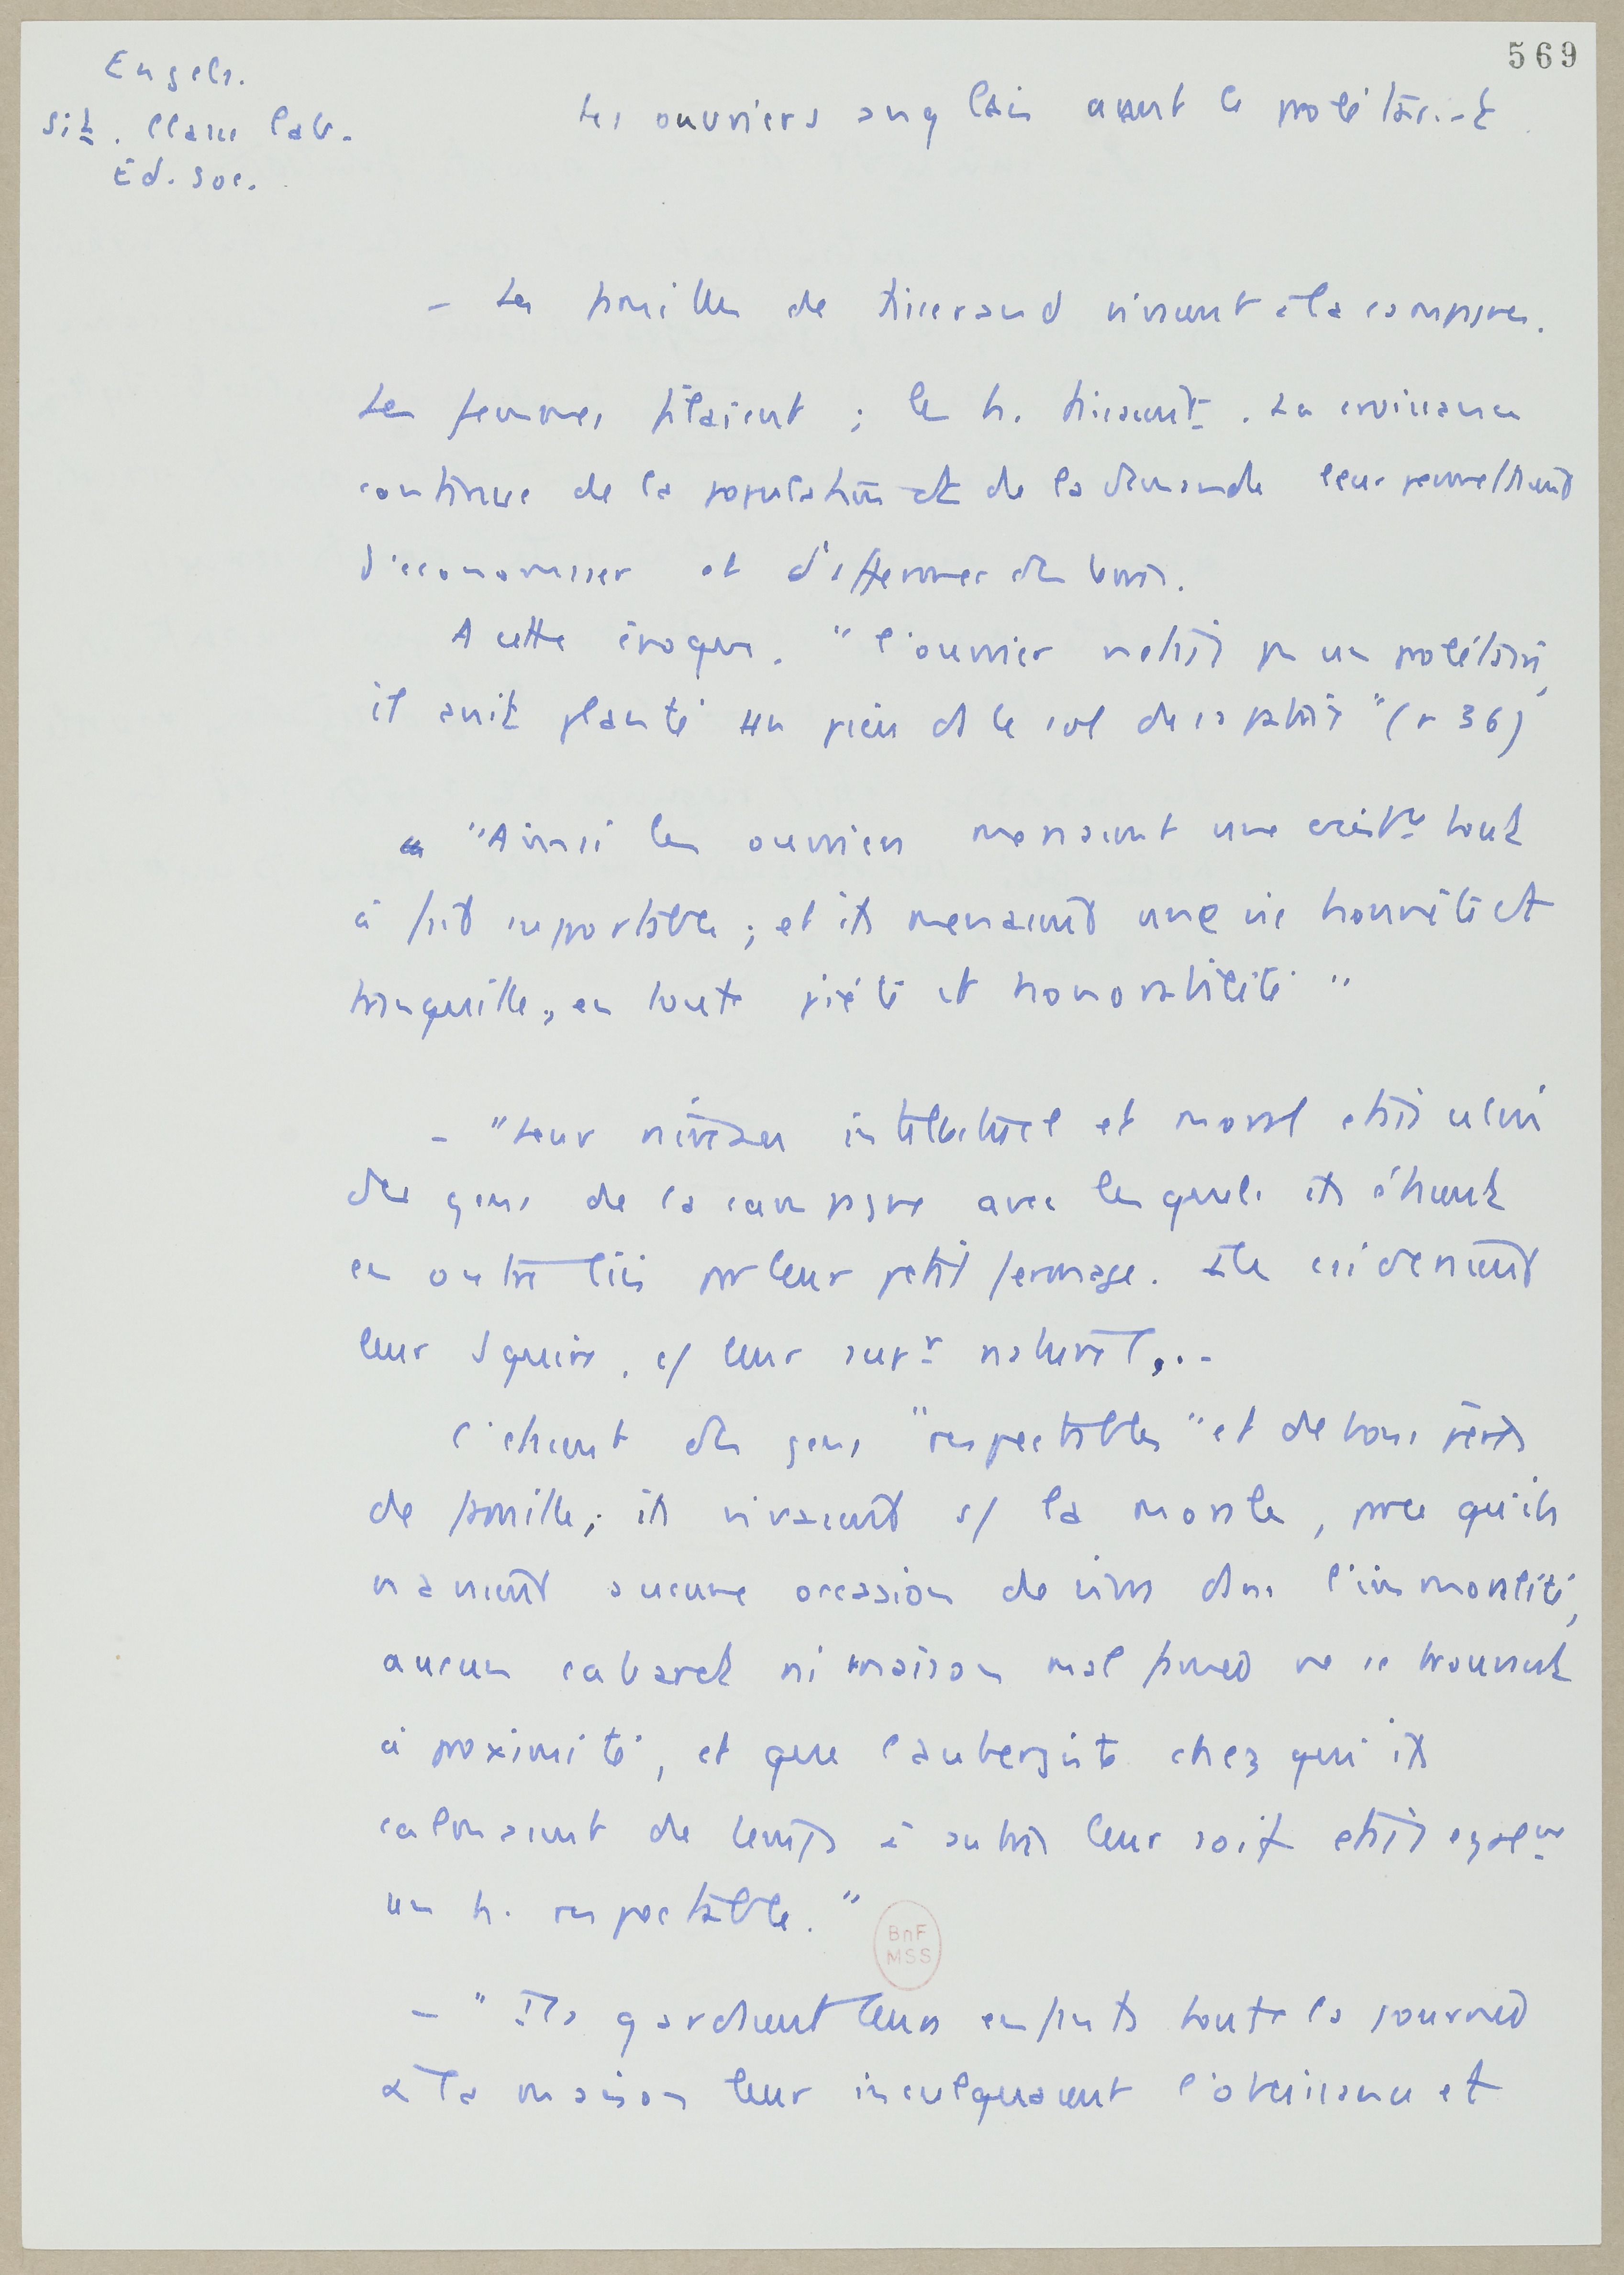 569
Engels.
Sit. classe lab.
Éd. Soc.
Les ouvriers anglais avant le prolétariat
- Les familles de tisserand vivaient à la campagne.
Les femmes filaient ; les h. tissaient. La croissance
continue de la population et de la demande leur permettaient
d'économiser et d'affermer des terres.
A cette époque, "l'ouvrier n'était pas un prolétaire,
il avait planté un pieu ds le sol de sa patrie" (p 36)
"Ainsi les ouvriers menaient une existce tout
à fait supportable ; et ils menaient une vie honnête et
tranquille, en toute piété et honorabilité"
- "Leur niveau intellectuel et moral était celui
des gens de la campagne avec lesquels ils étaient
en outre liés par leur petit fermage. Ils considéraient
leur squire, c/ leur supr naturel,..
C'étaient des gens "respectables" et de bons pères
de famille ; ils vivaient s/ la morale, parce qu'ils
n'avaient aucune occasion de vivre dans l'immoralité,
aucun cabaret ni maison mal famée ne se trouvant
à proximité, et que l'aubergiste chez qui ils
calmaient de temps à autre leur soif était égalemt
un h. respectable."
BnF
MSS
- "Ils gardaient leurs enfants toute la journée
à la maison leur inculquaient l'obéissance et